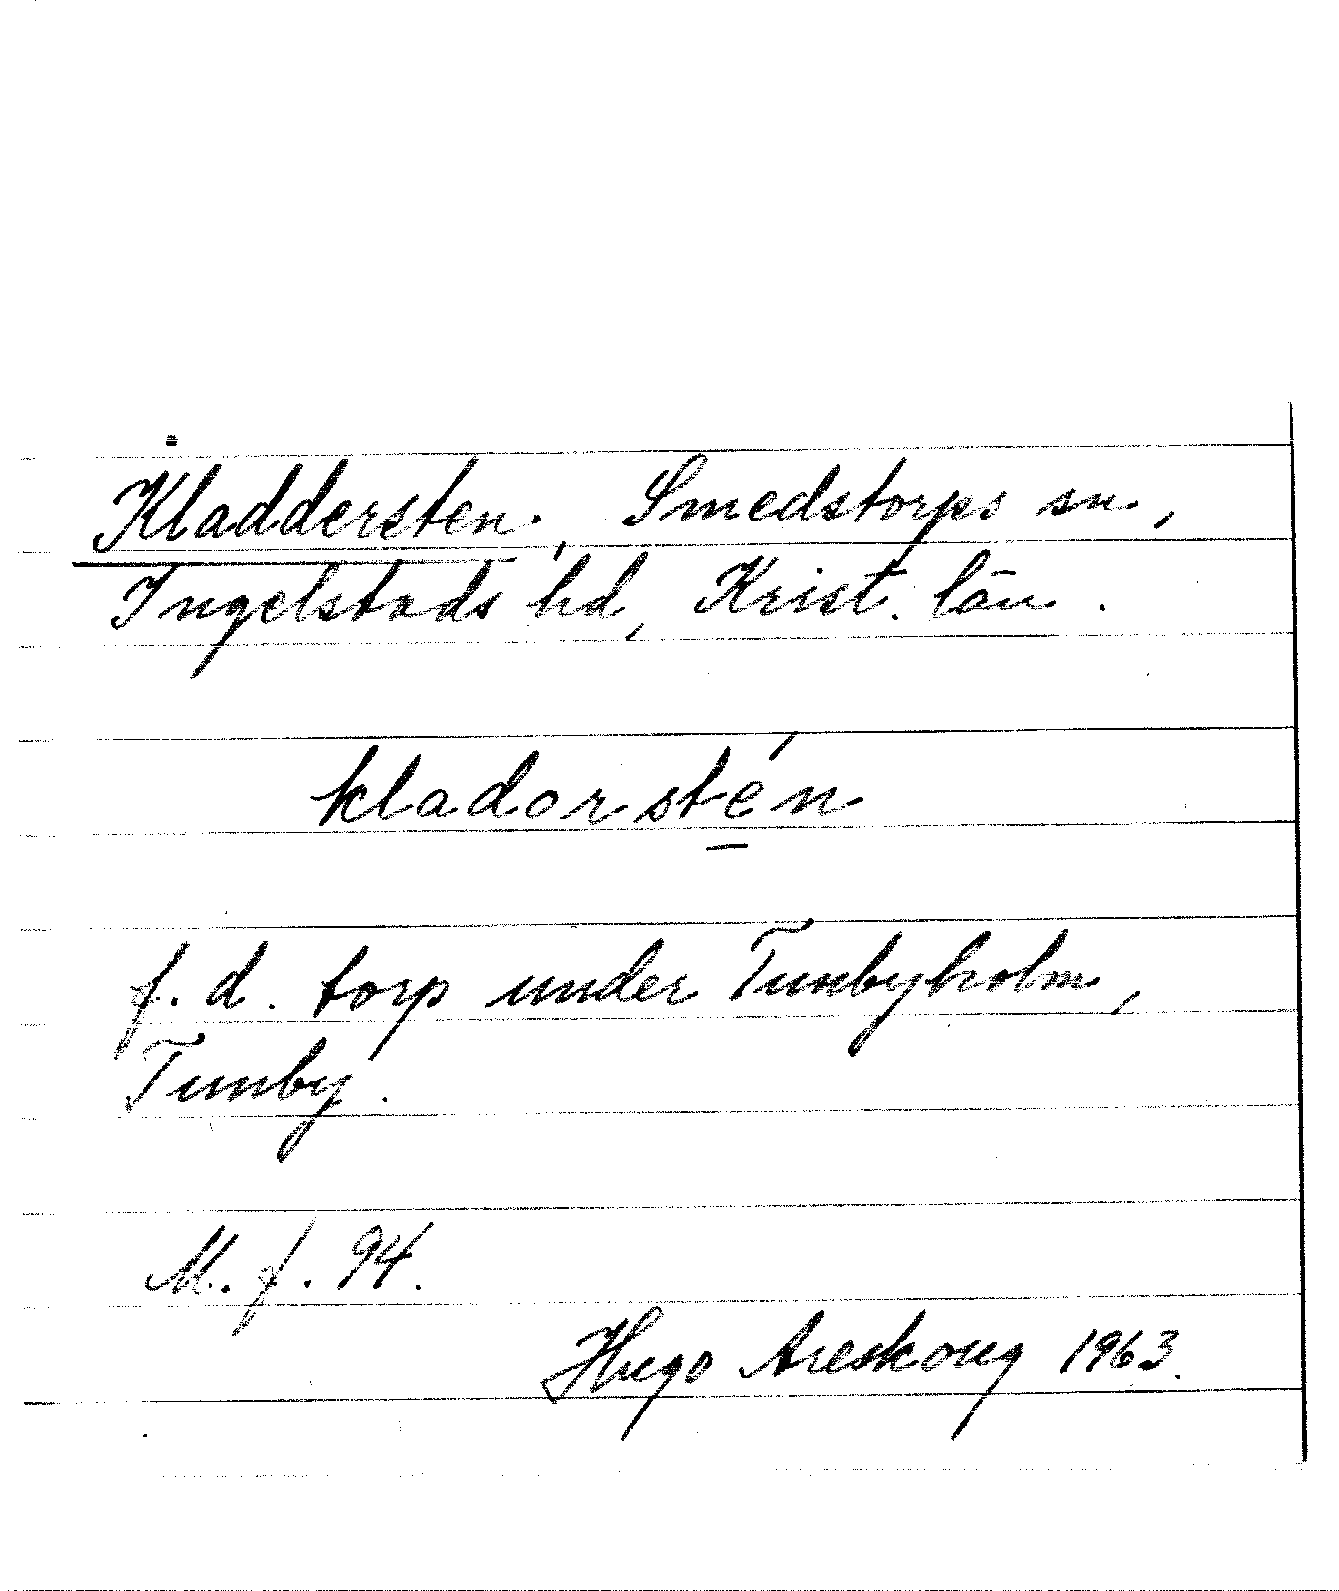 Kladdersten, Smedstorps sn.,
Ingelstads hd, Krist. län.
kladorstén
f. d. torp under Tunbyholm,
Tunby.
M. f. 94.
Hugo Areskoug 1963.